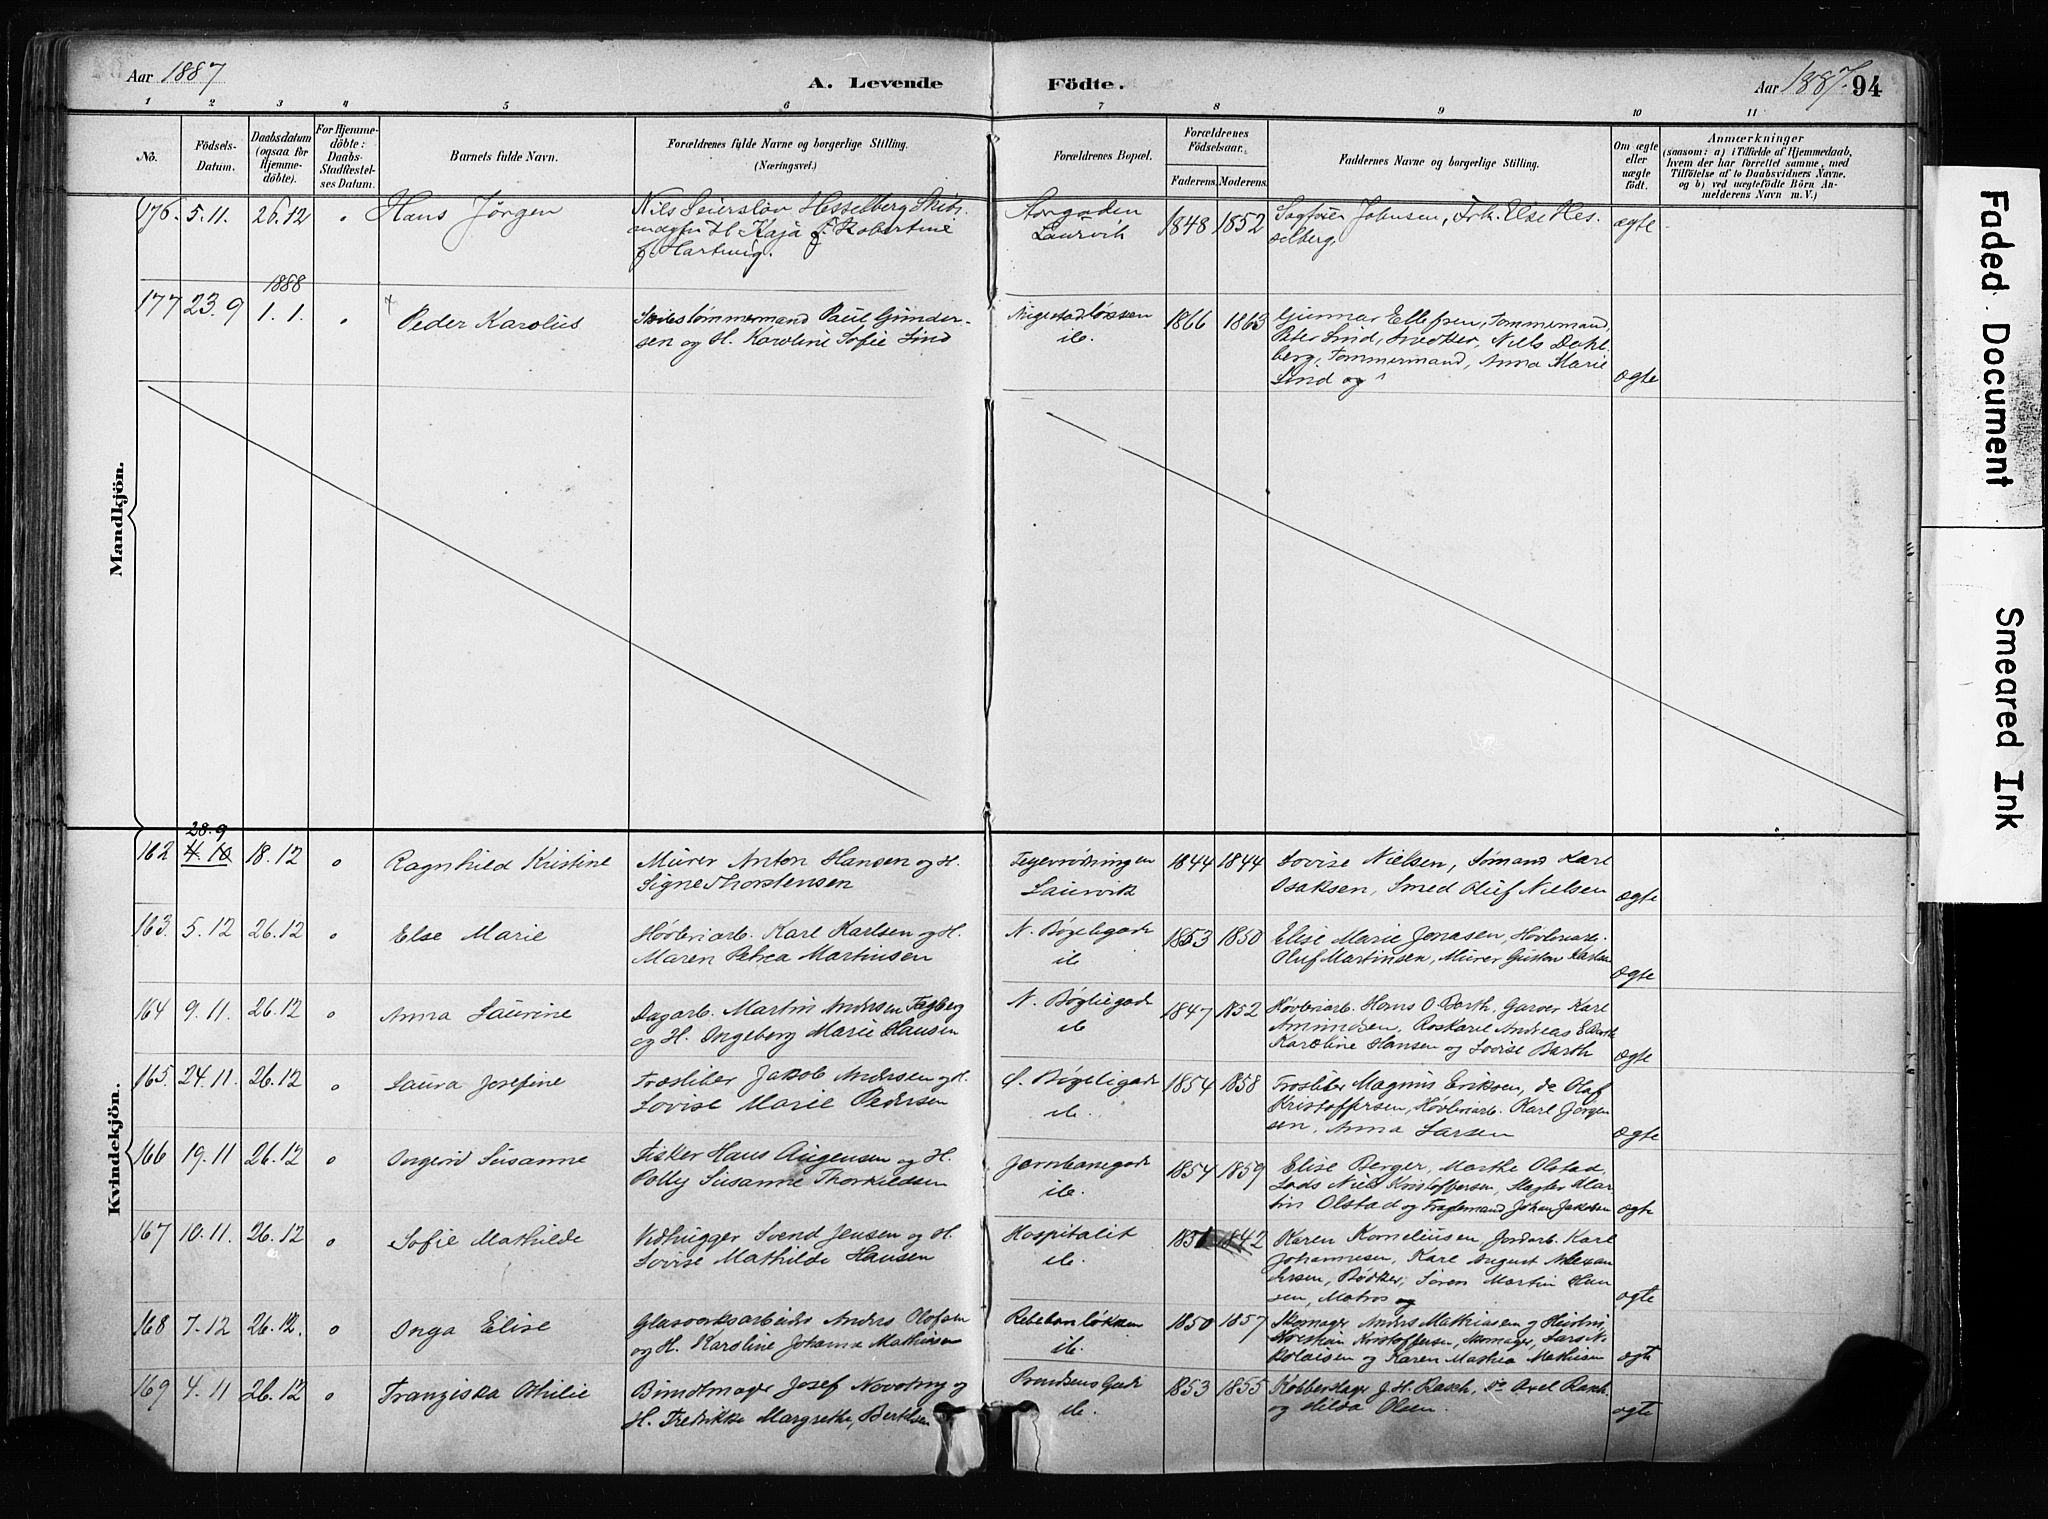 Aar 1887
A. Levende
Födte.
Aar 1887.
94
1 2 3 4 5 6 7 8 9 10 11
No.
Födsels-
Datum.
Daabsdatum
(ogsaa for
Hjemme-
döbte).
For Hjemme-
döbte:
Daabs-
Stadfæstel-
ses Datum.
Barnets fulde Navn.
Forældrenes fulde Navne og borgerlige Stilling.
(Næringsvei.)
Forældrenes Bopæl.
Forældrenes
Födselsaar.
Faderens. Moderens.
Faddernes Navne og borgerlige Stilling.
Om ægte
eller
uægte
födt.
Anmærkninger
(saasom: a) i Tilfælde af Hjemmedaab,
hvem der har forrettet samme, med
Tilföielse af to Daabsvidners Navne.
og b) ved uægtefödte Börn An-
melderens Navn m.V.)
Mandkjön.
176. 5.11. 26.12 Hans Jørgen
Nils Seiersløv Hesselberg Skibs-
og H. Kaja Robertine
f. Hartwig.
Storgaden
Laurvik
1848 1852
Sagfører Johnsen, Frk. Else Hes-
selberg,
ægte
177 23.9 1888
1.1. Peder Karolius
Skibstømmermand Paul Gunder-
sen og H. Karoline Sofie Lind
ib.
1866 1863
Gunnar Ellefsen, Tømmermand,
Peter Lind, Snedker, Niels Dahl-
berg, Tømmermand, Anna Marie
Lind og
ægte
Kvindekjön.
162 28.9
4.10 18.12 Ragnhild Kristine
Murer Anton Hansen og H.
Signe Thorstensen
Laurvik
1844 1844
Lovise Nielsen, Sømand Karl
Isaksen, Smed Oluf Nielsen
ægte
163. 5.12 26.12 Else Marie
Høvleriarb. Karl Karlsen og H.
Maren Petrea Martinsen
N. Bøgeligade
ib.
1853 1850
Elise Marie Jonasen, Høvleriarb.
Oluf Martinsen, Murer Gustav Karlsen
ægte
164 9.11. 26.12 Anna Laurine
Dagarb. Martin Andersen Fagberg
og H. Ingeborg Marie Hansen
N. Bøgligade
ib.
1847 1852
Høvleriarb. Hans O. Barth, Garver Karl
Amundsen, Andreas E. Barth
Karoline Hansen og Lovise Barth
ægte
165. 24.11. 26.12 Laura Josefine
Træsliber Jakob Andersen og H.
Lovise Marie Pedersen
S. Bøgeligade
ib.
1854 1858
Træsliber Magnus Eriksen, do Olaf
Kristoffersen, Høvleriarb. Karl Jørgen-
sen, Anna Larsen
ægte
166 19.11 26.12 Ingerid Susanne
Fisker Hans Augensen og H.
Polly Susanne Thorkildsen
Jernbanegade
ib.
1854 1859
Elise Berger, Marthe Olstad,
Lods Niels Kristoffersen, Slagter Mar-
tin Olstad og Johan Jakobsen
ægte
167 10.11. 26.12 Sofie Mathilde
Vedhugger Svend Jensen og H.
Lovise Mathilde Hansen
Hospitalet
ib.
1851 1842
Karen Korneliussen, Jordarb. Karl
Johannesen, Karl August Alexan-
dersen, Bødker, Søren Martin Han-
sen, Matros og
ægte
168 7.12 26.12. Inga Elise
Glasverksarbeider Anders Olofsen
og H. Karoline Johanne Mathisen
ib.
1850 1857
Skomager Anders Mathiasen og Hustru,
Kristian Kristoffersen, Skomager, Lars N-
kolaisen og Karen Mathea Mathisen
ægte
169 4.11 26.12 Franziska Othilie
Bundtmager Josef Novotny og
H. Fredrikke Margrethe, Bertelsen
ib.
1853 1855
Kobberslager J. H. Rasch, do Axel Rasch
og Hilda Olsen.
ægte
Faded Document
Smeared Ink